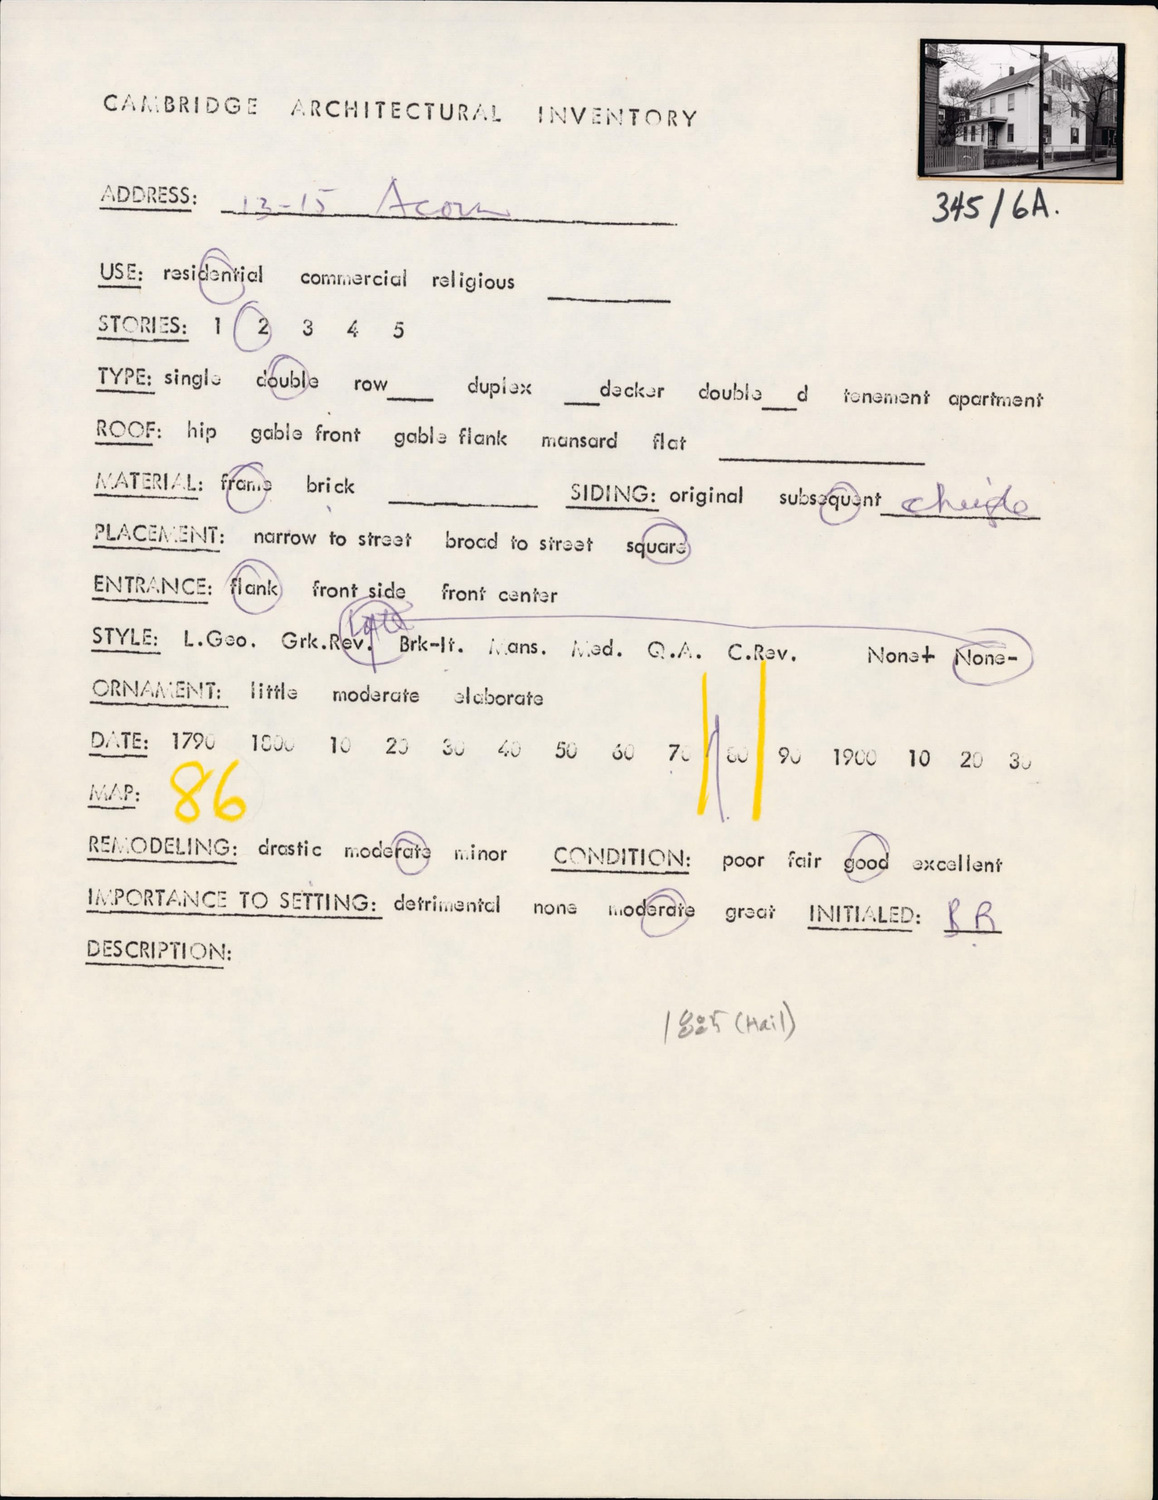 CAMBRIDGE ARCHITECTURAL INVENTORY
345/6A.
ADDRESS: 13-15 Acorn
USE: residential commercial religious
STORIES: 1 2 3 4 5
TYPE: single double row___ duplex ___decker double___d tenement apartment
ROOF: hip gable front gable flank mansard flat
MATERIAL: frame brick SIDING: original subsequent shingle
PLACEMENT: narrow to street broad to street square
ENTRANCE: flank front side front center
Late
STYLE: L.Geo. Grk.Rev. Brk-It. Mans. Med. Q.A. C.Rev. None+ None-
ORNAMENT: little moderate elaborate
DATE: 1790 1800 10 20 30 40 50 60 70 80 90 1900 10 20 30
MAP: 86
REMODELING: drastic moderate minor CONDITION: poor fair good excellent
IMPORTANCE TO SETTING: detrimental none moderate great INITIALED: BR
DESCRIPTION:
1885 (Hail)